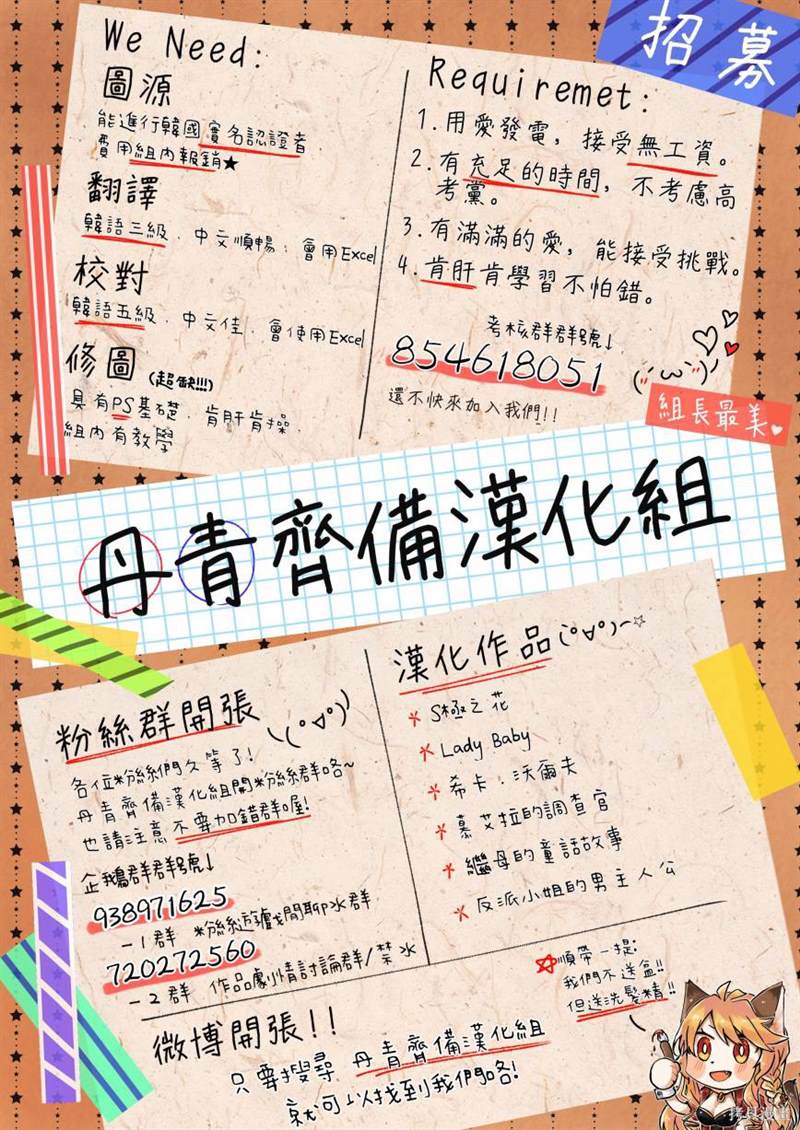 招募
We Need:
圖源
能進行韓國實名認證者
費用組內報銷★
翻譯
韓語三級．中文順暢．會用Excel
校對
韓語五級．中文佳．會使用Excel
修圖(超缺!!!)
具有PS基礎．肯肝肯操．
組內有教學
Requiremet:
1.用愛發電，接受無工資。
2.有充足的時間，不考慮高
考黨。
3.有滿滿的愛，能接受挑戰。
4.肯肝肯學習不怕錯。
考核群群號↓
854618051
還不快來加入我們!!
組長最美♥
丹青齊備漢化組
粉絲群開張
各位粉絲們久等了!
丹青齊備漢化組開粉絲群咯~
也請注意不要加錯群喔!
企鵝群群號↓
938971625
-1群 粉絲遊戲閒聊水群
720272560
-2群 作品劇情討論群/禁水
漢化作品(°∀°)~☆
S極之花
Lady Baby
希卡·沃爾夫
慕艾拉的調查官
繼母的童話故事
反派小姐的男主人公
順帶一提:
我們不送盒!!
但送洗髮精!!
微博開張!!
只要搜尋 丹青齊備漢化組
就可以找到我們咯!